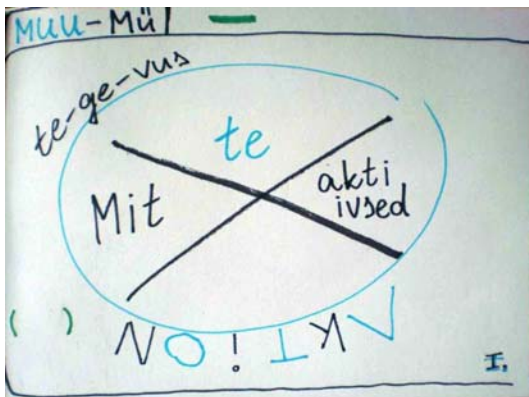 MUU-Mül
te-ge-vus
te
Mit
akti
ivsed
( )
NO!TKA
I.